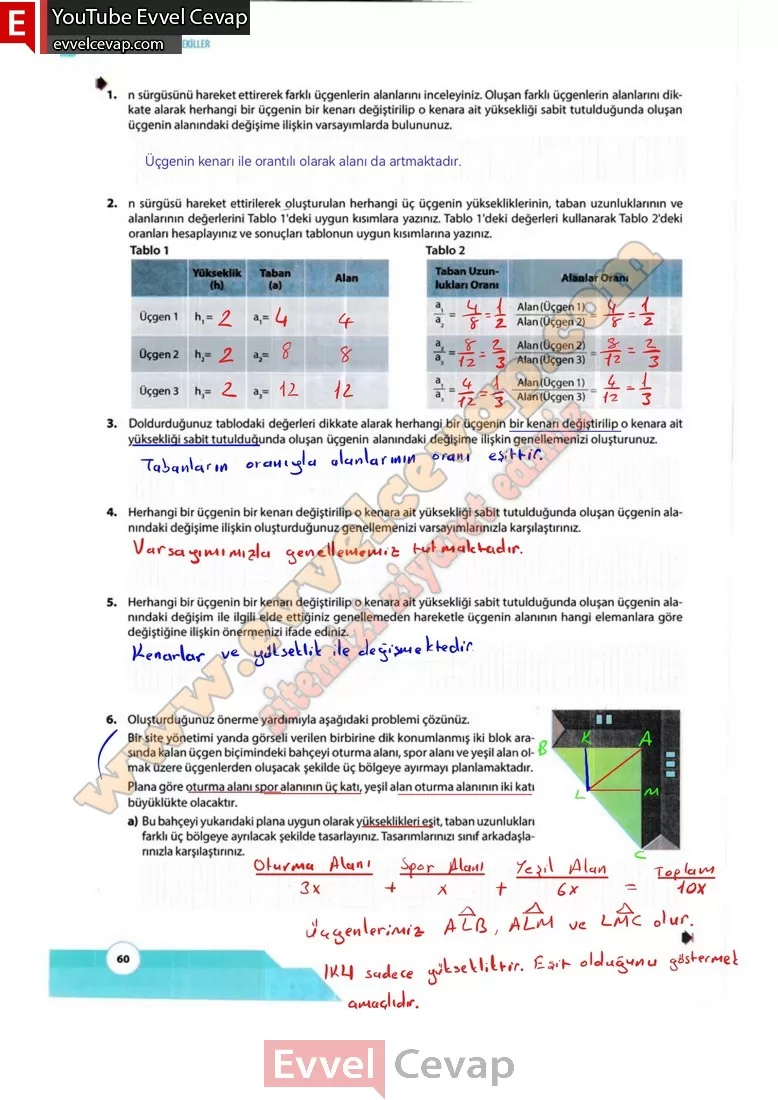 YouTube Evvel Cevap
evvelcevap.com
EKİLLER
1. n sürgüsünü hareket ettirerek farklı üçgenlerin alanlarını inceleyiniz. Oluşan farklı üçgenlerin alanlarını dik-
kate alarak herhangi bir üçgenin bir kenarı değiştirilip o kenara ait yüksekliği sabit tutulduğunda oluşan
üçgenin alanındaki değişime ilişkin varsayımlarda bulununuz.
Üçgenin kenarı ile orantılı olarak alanı da artmaktadır.
2. n sürgüsü hareket ettirilerek oluşturulan herhangi üç üçgenin yüksekliklerinin, taban uzunluklarının ve
alanlarının değerlerini Tablo 1'deki uygun kısımlara yazınız. Tablo 1'deki değerleri kullanarak Tablo 2'deki
oranları hesaplayınız ve sonuçları tablonun uygun kısımlarına yazınız.
Tablo 1
Yükseklik (h) Taban (a) Alan
Üçgen 1 h₁= 2 a₁= 4 4
Üçgen 2 h₂= 2 a₂= 8 8
Üçgen 3 h₃= 2 a₃= 12 12
Tablo 2
Taban Uzun-
lukları Oranı Alanlar Oranı
a₁/a₂ = 4/8 = 1/2 Alan(Üçgen 1)/Alan(Üçgen 2) = 4/8 = 1/2
a₂/a₃ = 8/12 = 2/3 Alan(Üçgen 2)/Alan(Üçgen 3) = 8/12 = 2/3
a₁/a₃ = 4/12 = 1/3 Alan(Üçgen 1)/Alan(Üçgen 3) = 4/12 = 1/3
3. Doldurduğunuz tablodaki değerleri dikkate alarak herhangi bir üçgenin bir kenarı değiştirilip o kenara ait
yüksekliği sabit tutulduğunda oluşan üçgenin alanındaki değişime ilişkin genellemenizi oluşturunuz.
Tabanların oranıyla alanlarının oranı eşittir.
4. Herhangi bir üçgenin bir kenarı değiştirilip o kenara ait yüksekliği sabit tutulduğunda oluşan üçgenin ala-
nındaki değişime ilişkin oluşturduğunuz genellemenizi varsayımlarınızla karşılaştırınız.
Varsayımımızla genellememiz tutmaktadır.
5. Herhangi bir üçgenin bir kenarı değiştirilip o kenara ait yüksekliği sabit tutulduğunda oluşan üçgenin ala-
nındaki değişim ile ilgili elde ettiğiniz genellemeden hareketle üçgenin alanının hangi elemanlara göre
değiştiğine ilişkin önermenizi ifade ediniz.
Kenarlar ve yükseklik ile değişmektedir
6. Oluşturduğunuz önerme yardımıyla aşağıdaki problemi çözünüz.
Bir site yönetimi yanda görseli verilen birbirine dik konumlanmış iki blok ara-
sında kalan üçgen biçimindeki bahçeyi oturma alanı, spor alanı ve yeşil alan ol-
mak üzere üçgenlerden oluşacak şekilde üç bölgeye ayırmayı planlamaktadır.
Plana göre oturma alanı spor alanının üç katı, yeşil alan oturma alanının iki katı
büyüklükte olacaktır.
a) Bu bahçeyi yukarıdaki plana uygun olarak yükseklikleri eşit, taban uzunlukları
farklı üç bölgeye ayrılacak şekilde tasarlayınız. Tasarımlarınızı sınıf arkadaşla-
rınızla karşılaştırınız.
B K A
L M
C
Oturma Alanı Spor Alanı Yeşil Alan Toplam
3x + x + 6x = 10x
Üçgenlerimiz ALB, ALM ve LMC olur.
|KL| sadece yüksekliktir. Eşit olduğunu göstermek
amaçlıdır.
60
www.evvelcevap.com
sitemizi ziyaret ediniz
Evvel Cevap